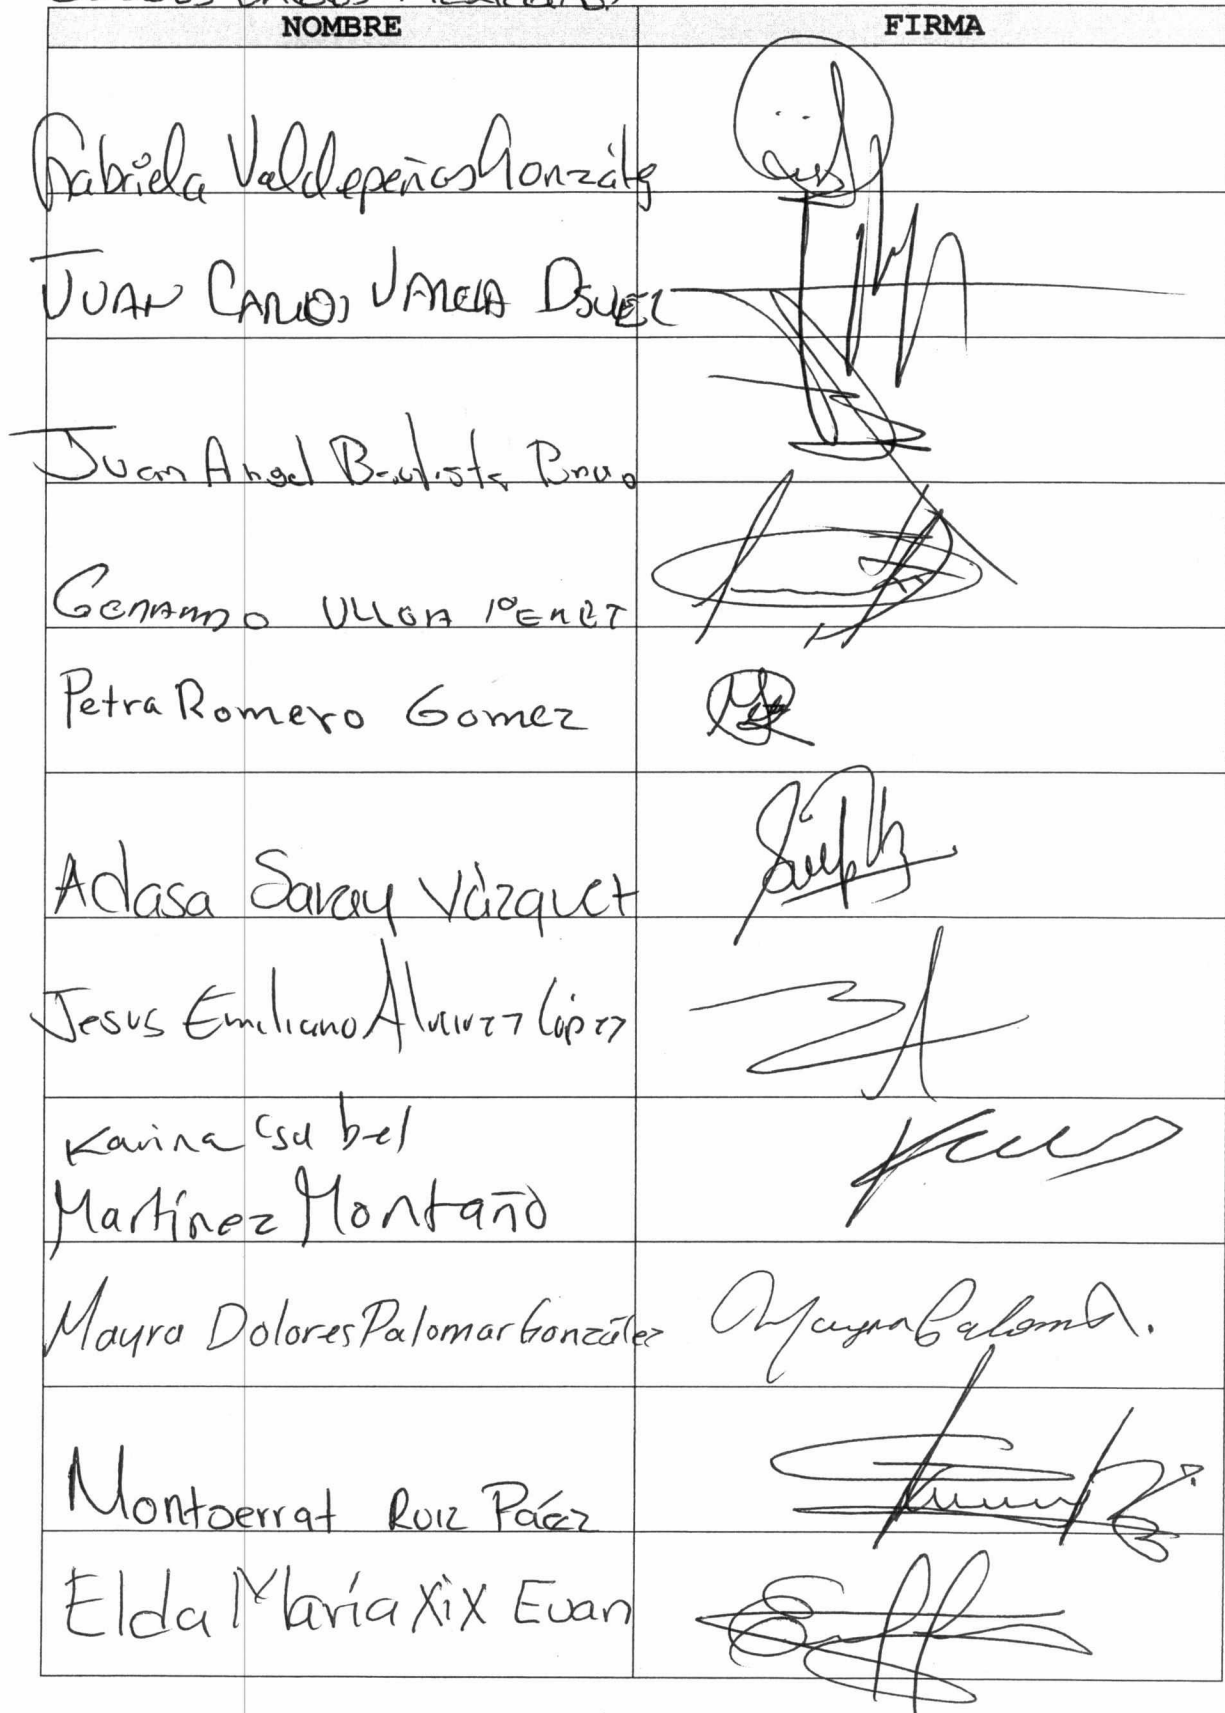 NOMBRE FIRMA
Gabriela Valdepeñas González
JUAN CARLOS VARELA
Juan Angel Bautista Bravo
GERARDO ULLOA PERET
Petra Romero Gomez
Adasa Saray Vázquez
Jesus Emiliano Alvarez López
Karina Isabel
Martínez Montaño
Mayra Dolores Palomar González Mayra Palomar.
Montserrat Ruiz Páez
Elda María Xix Euan